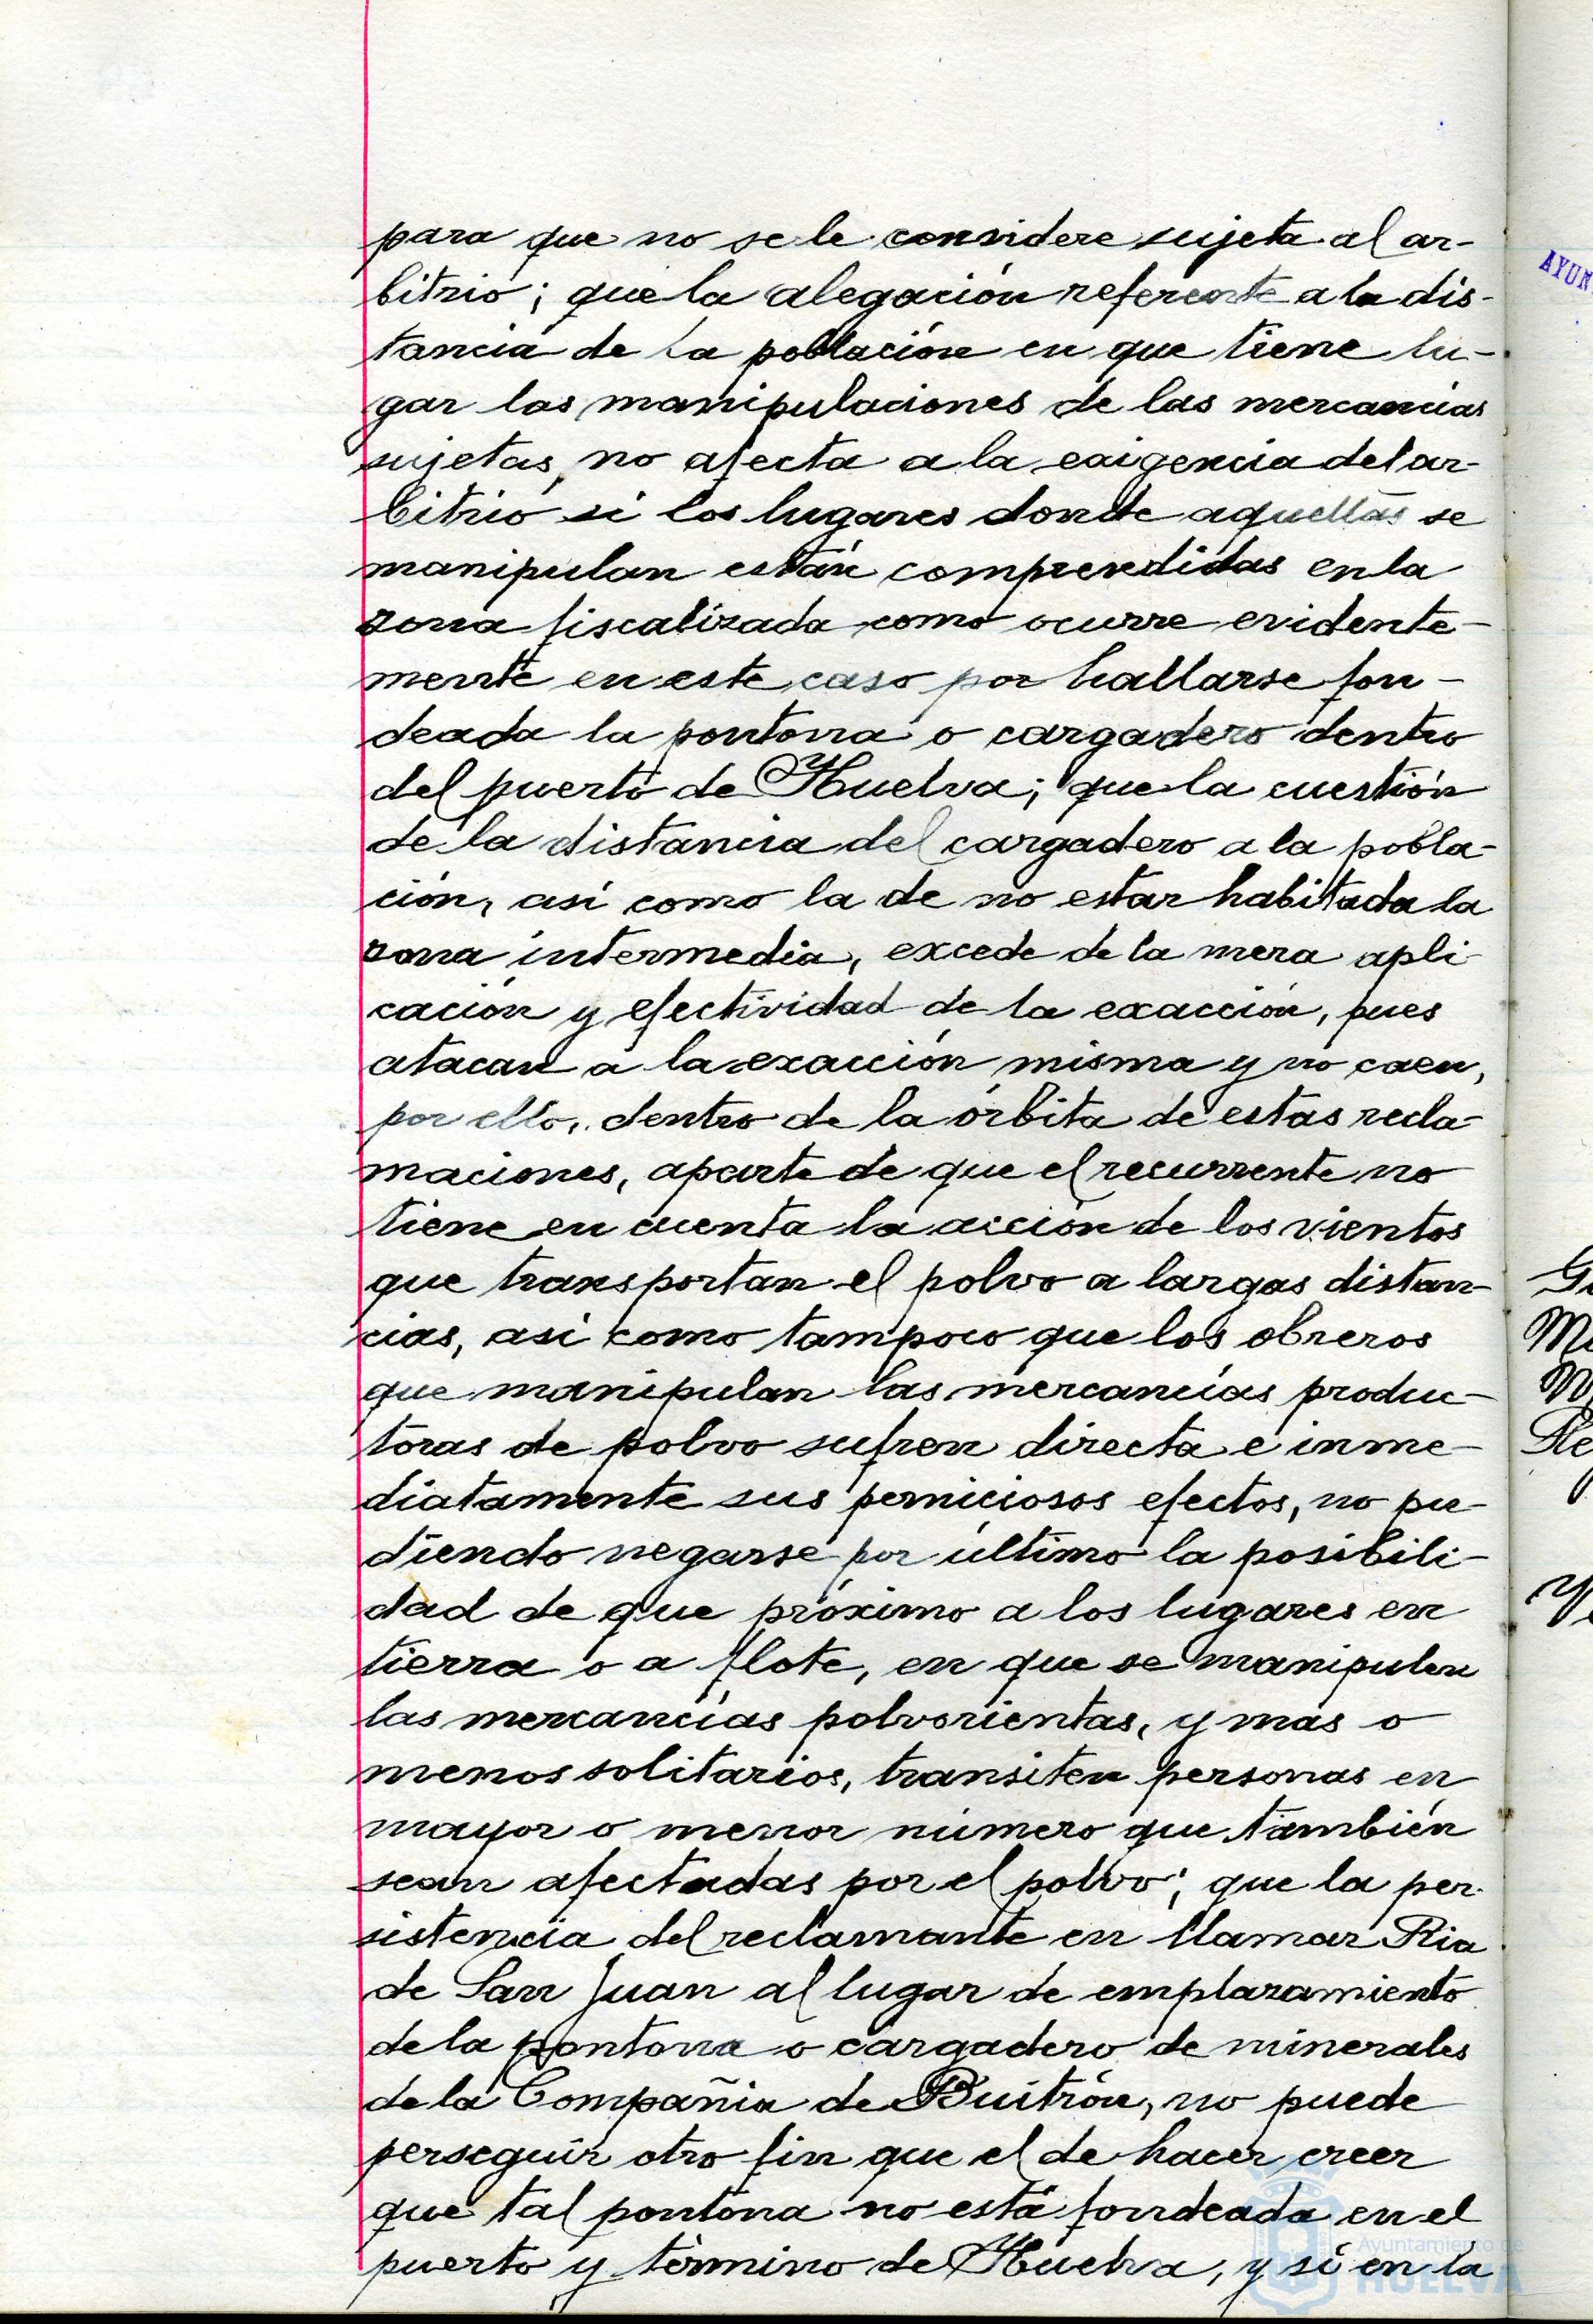 para que no se le considere sujeta al ar-
bitrio; que la alegación referente a la dis-
tancia de la población en que tiene lu-
gar las manipulaciones de las mercancías
sujetas, no afecta a la exigencia del ar-
bitrio si los lugares donde aquellas se
manipulan están comprendidas en la
zona fiscalizada como ocurre evidente-
mente en este caso por hallarse fon-
deada la pontona o cargadero dentro
del puerto de Huelva; que la cuestión
de la distancia del cargadero a la pobla-
ción, así como la de no estar habitada la
zona intermedia, excede de la mera apli-
cación y efectividad de la exacción, pues
atacan a la exacción misma y no caen,
por ello, dentro de la órbita de estas recla-
maciones, aparte de que el recurrente no
tiene en cuenta la acción de los vientos
que transportan el polvo a largas distan-
cias, así como tampoco que los obreros
que manipulan las mercancías produc-
toras de polvo sufren directa e inme-
diatamente sus perniciosos efectos, no pu-
diendo negarse por último la posibili-
dad de que próximo a los lugares en
tierra o a flote, en que se manipulen
las mercancías polvorientas, y más o
menos solitarios, transiten personas en
mayor o menor número que también
sean afectadas por el polvo; que la per-
sistencia del reclamante en llamar Ria
de San Juan al lugar de emplazamiento
de la pontona o cargadero de minerales
de la Compañia de Buitrón, no puede
perseguir otro fin que el de hacer creer
que tal pontona no está fondeada en el
puerto y término de Huelva, y si en la
AYUN
Ayuntamiento de
HUELVA